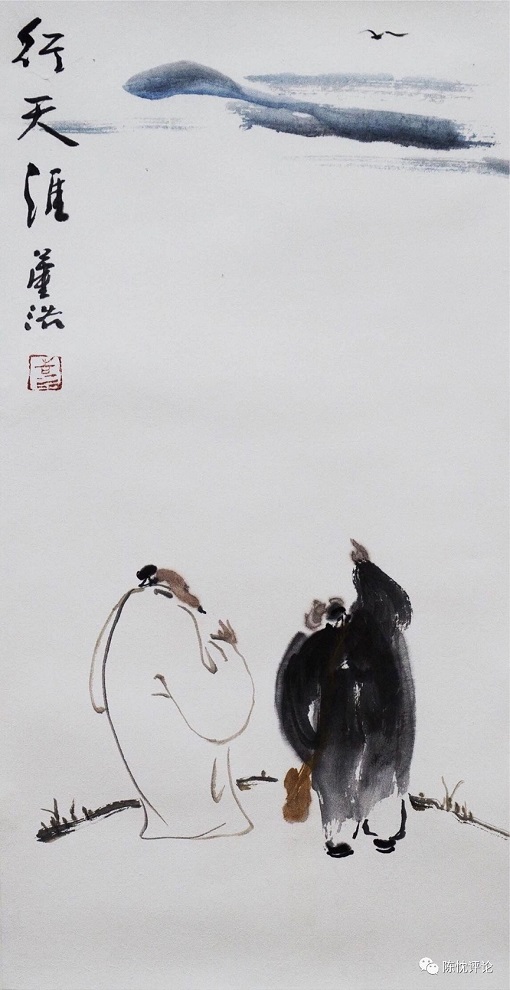 行天涯
董浩
陈忱评论